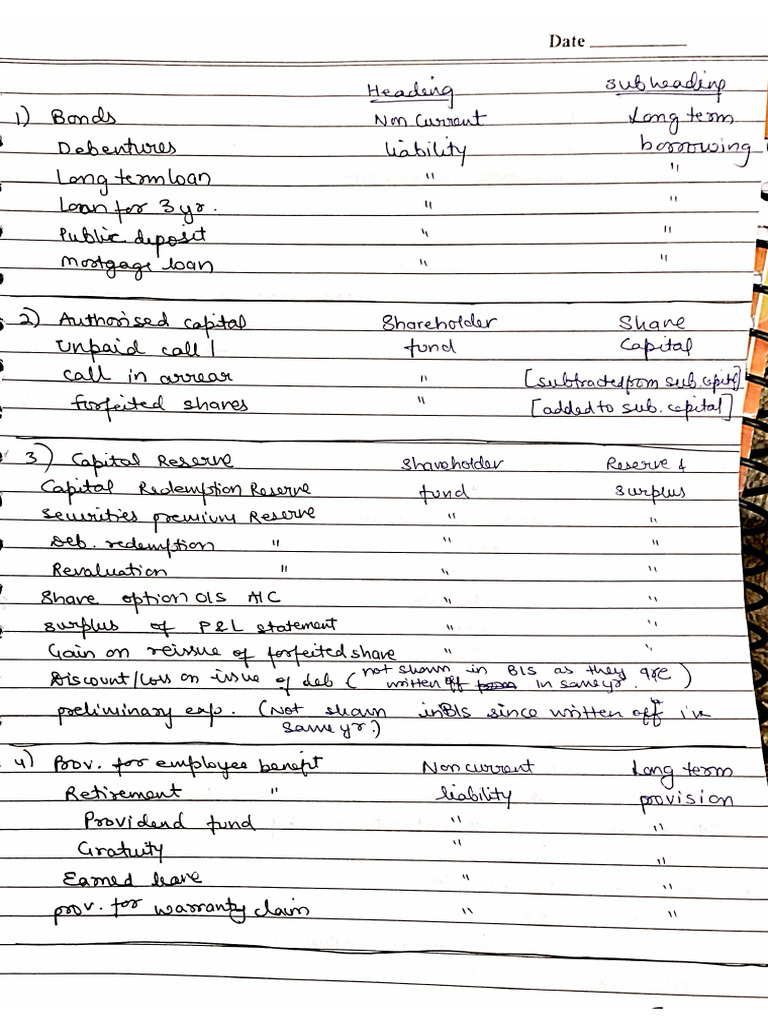 Date
Heading Subheading
1) Bonds Non Current Long term
Debentures liability borrowing
Long term loan " "
Loan for 3 yr. " "
Public deposit " "
Mortgage loan " "
2) Authorised capital Shareholder Share
Unpaid call / fund Capital
call in arrear " [subtracted from sub. capital]
forfeited shares " [added to sub. capital]
3) Capital Reserve Shareholder Reserve &
Capital Redemption Reserve fund Surplus
Securities premium Reserve " "
Deb. redemption " " "
Revaluation " " "
Share option O/S A/C " "
Surplus of P&L statement " "
Gain on reissue of forfeited share " "
Discount/Loss on issue of deb (not shown in B/S as they are
written off in same yr.)
preliminary exp. (Not shown in B/S since written off in
same yr.)
4) Prov. for employee benefit Non current Long term
Retirement " liability provision
Providend fund " "
Gratuity " "
Earned leave " "
prov. for warranty claim " "